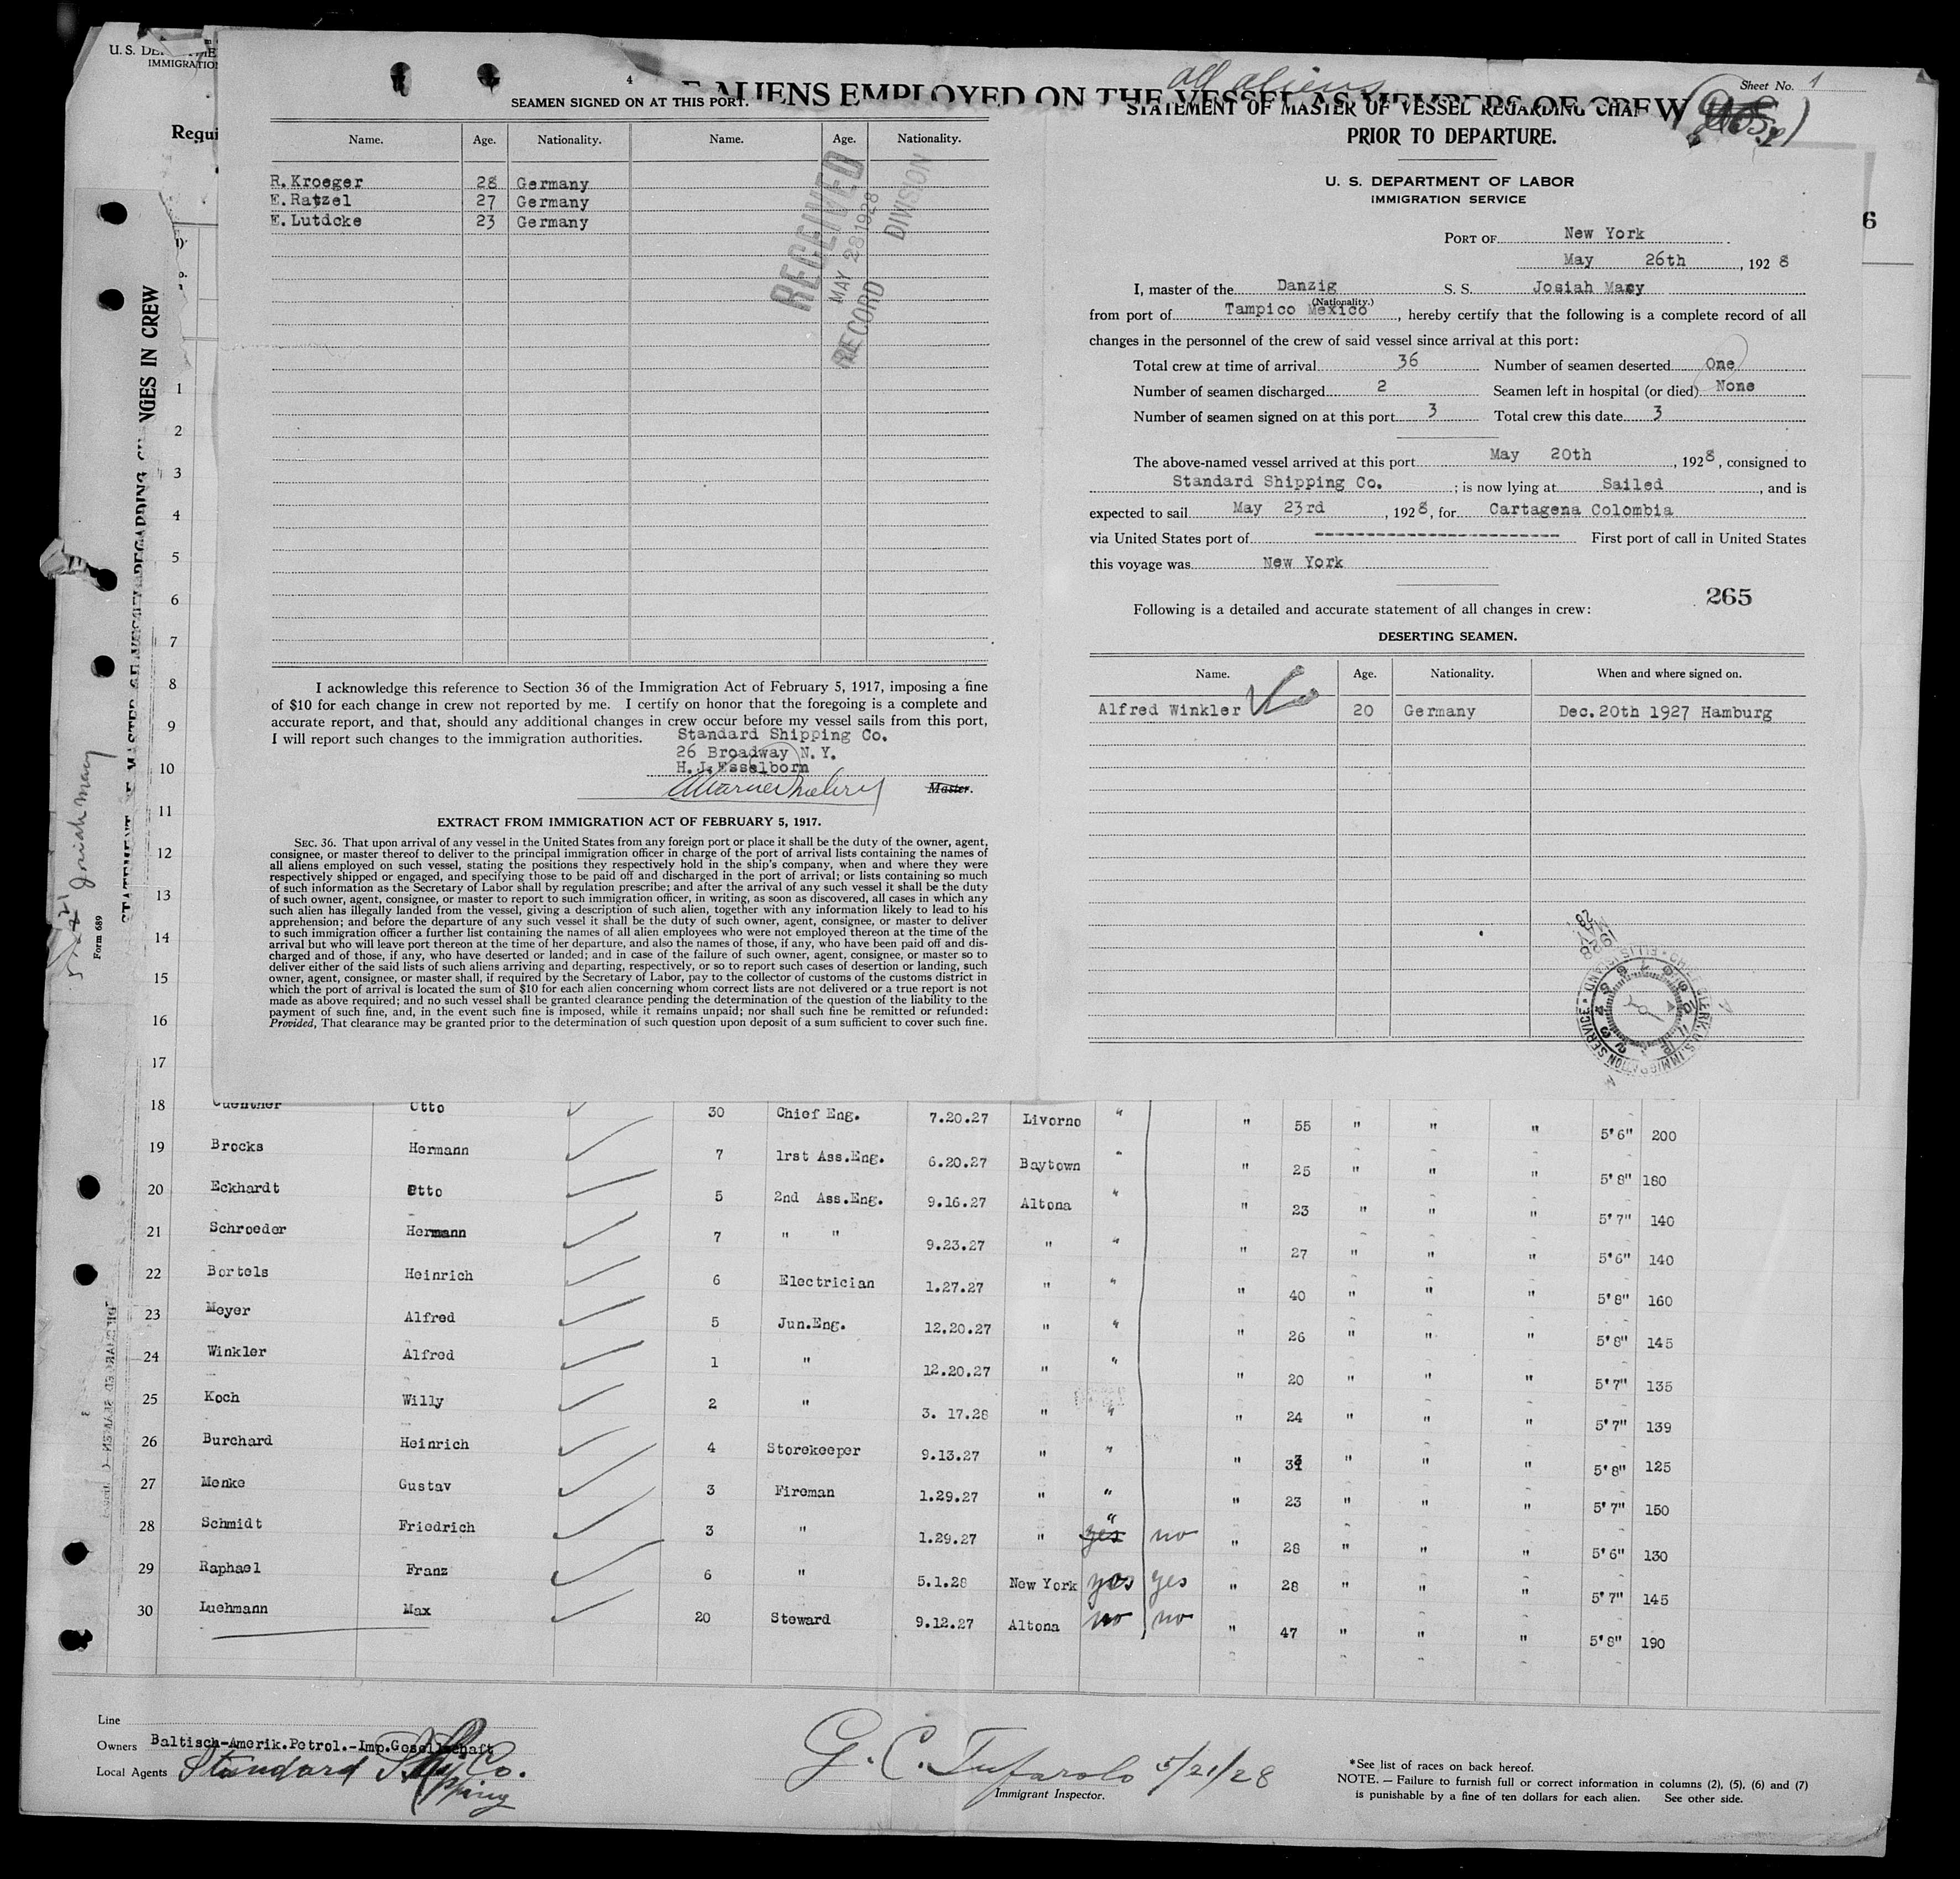 U. S. DE
IMMIGRATIO
Requi
4
SEAMEN SIGNED ON AT THIS PORT.
Name. Age. Nationality. Name. Age. Nationality.
R. Kroeger 28 Germany
E. Ratzel 27 Germany
E. Lutdcke 23 Germany
RECEIVED
MAY 28 1928
RECORD DIVISION
I acknowledge this reference to Section 36 of the Immigration Act of February 5, 1917, imposing a fine
of $10 for each change in crew not reported by me. I certify on honor that the foregoing is a complete and
accurate report, and that, should any additional changes in crew occur before my vessel sails from this port,
I will report such changes to the immigration authorities.
Standard Shipping Co.
26 Broadway N. Y.
H. J. Esselborn
Master.
EXTRACT FROM IMMIGRATION ACT OF FEBRUARY 5, 1917.
SEC. 36. That upon arrival of any vessel in the United States from any foreign port or place it shall be the duty of the owner, agent,
consignee, or master thereof to deliver to the principal immigration officer in charge of the port of arrival lists containing the names of
all aliens employed on such vessel, stating the positions they respectively hold in the ship's company, when and where they were
respectively shipped or engaged, and specifying those to be paid off and discharged in the port of arrival; or lists containing so much
of such information as the Secretary of Labor shall by regulation prescribe; and after the arrival of any such vessel it shall be the duty
of such owner, agent, consignee, or master to report to such immigration officer, in writing, as soon as discovered, all cases in which any
such alien has illegally landed from the vessel, giving a description of such alien, together with any information likely to lead to his
apprehension; and before the departure of any such vessel it shall be the duty of such owner, agent, consignee, or master to deliver
to such immigration officer a further list containing the names of all alien employees who were not employed thereon at the time of the
arrival but who will leave port thereon at the time of her departure, and also the names of those, if any, who have been paid off and dis-
charged and of those, if any, who have deserted or landed; and in case of the failure of such owner, agent, consignee, or master so to
deliver either of the said lists of such aliens arriving and departing, respectively, or so to report such cases of desertion or landing, such
owner, agent, consignee, or master shall, if required by the Secretary of Labor, pay to the collector of customs of the customs district in
which the port of arrival is located the sum of $10 for each alien concerning whom correct lists are not delivered or a true report is not
made as above required; and no such vessel shall be granted clearance pending the determination of the question of the liability to the
payment of such fine, and, in the event such fine is imposed, while it remains unpaid; nor shall such fine be remitted or refunded:
Provided, That clearance may be granted prior to the determination of such question upon deposit of a sum sufficient to cover such fine.
all aliens
Sheet No. 1
ALIENS EMPLOYED ON THE VESSEL AS MEMBERS OF CREW
STATEMENT OF MASTER OF VESSEL REGARDING CHA
PRIOR TO DEPARTURE.
U. S. DEPARTMENT OF LABOR
IMMIGRATION SERVICE
6
PORT OF New York
May 26th, 1928
I, master of the Danzig S. S. Josiah Macy
(Nationality.)
from port of Tampico Mexico, hereby certify that the following is a complete record of all
changes in the personnel of the crew of said vessel since arrival at this port:
Total crew at time of arrival 36 Number of seamen deserted One
Number of seamen discharged 2 Seamen left in hospital (or died) None
Number of seamen signed on at this port 3 Total crew this date 3
The above-named vessel arrived at this port May 20th, 1928, consigned to
Standard Shipping Co. ; is now lying at Sailed, and is
expected to sail May 23rd, 1928, for Cartagena Colombia
via United States port of ------------------------ First port of call in United States
this voyage was New York
265
Following is a detailed and accurate statement of all changes in crew:
DESERTING SEAMEN.
Name. Age. Nationality. When and where signed on.
Alfred Winkler 20 Germany Dec. 20th 1927 Hamburg
NGES IN CREW
Form 689
Josiah Macy
1
2
3
4
5
6
7
8
9
10
11
12
13
14
15
16
17
18 Guenther Otto 30 Chief Eng. 7.20.27 Livorno " " 55 " " " 5'6" 200
19 Brocks Hermann 7 1rst Ass.Eng. 6.20.27 Baytown " " 25 " " " 5'8" 180
20 Eckhardt Otto 5 2nd Ass.Eng. 9.16.27 Altona " " 23 " " " 5'7" 140
21 Schroeder Hermann 7 " " 9.23.27 " " " 27 " " " 5'6" 140
22 Bortels Heinrich 6 Electrician 1.27.27 " " " 40 " " " 5'8" 160
23 Meyer Alfred 5 Jun.Eng. 12.20.27 " " " 26 " " " 5'8" 145
24 Winkler Alfred 1 " 12.20.27 " " " 20 " " " 5'7" 135
25 Koch Willy 2 " 3. 17.28 " " " 24 " " " 5'7" 139
26 Burchard Heinrich 4 Storekeeper 9.13.27 " " " " " " 5'8" 125
27 Menke Gustav 3 Fireman 1.29.27 " " " 23 " " " 5'7" 150
28 Schmidt Friedrich 3 " 1.29.27 " " yes no " 28 " " " 5'6" 130
29 Raphael Franz 6 " 5.1.28 New York yes yes " 28 " " " 5'7" 145
30 Luehmann Max 20 Steward 9.12.27 Altona no no " 47 " " " 5'8" 190
Line
Owners Baltisch-Amerik.Petrol.-Imp.Gesellschaft
Local Agents Standard Shipping Co.
G. C. Tufarolo 5/21/28
Immigrant Inspector.
*See list of races on back hereof.
NOTE. — Failure to furnish full or correct information in columns (2), (5), (6) and (7)
is punishable by a fine of ten dollars for each alien. See other side.